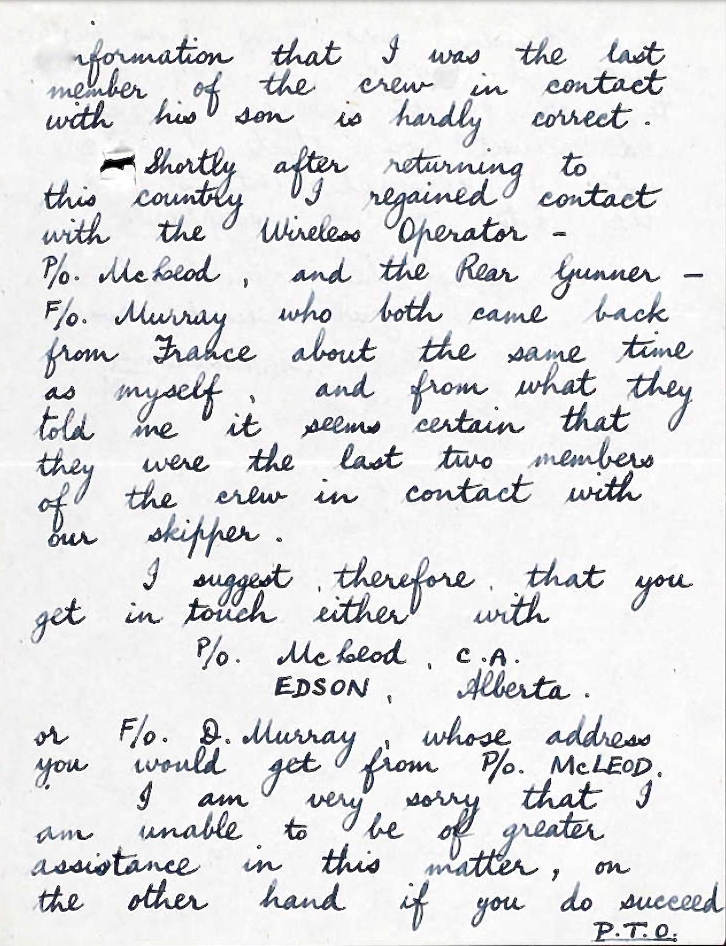 information that I was the last
member of the crew in contact
with his son is hardly correct.
Shortly after returning to
this country I regained contact
with the Wireless Operator -
P/o. McLeod, and the Rear Gunner -
F/o. Murray who both came back
from France about the same time
as myself, and from what they
told me it seems certain that
they were the last two members
of the crew in contact with
our skipper.
I suggest, therefore, that you
get in touch either with
P/o. McLeod, C.A.
EDSON, Alberta.
or F/o. D. Murray, whose address
you would get from P/o. McLEOD.
I am very sorry that I
am unable to be of greater
assistance in this matter, on
the other hand if you do succeed
P.T.O.